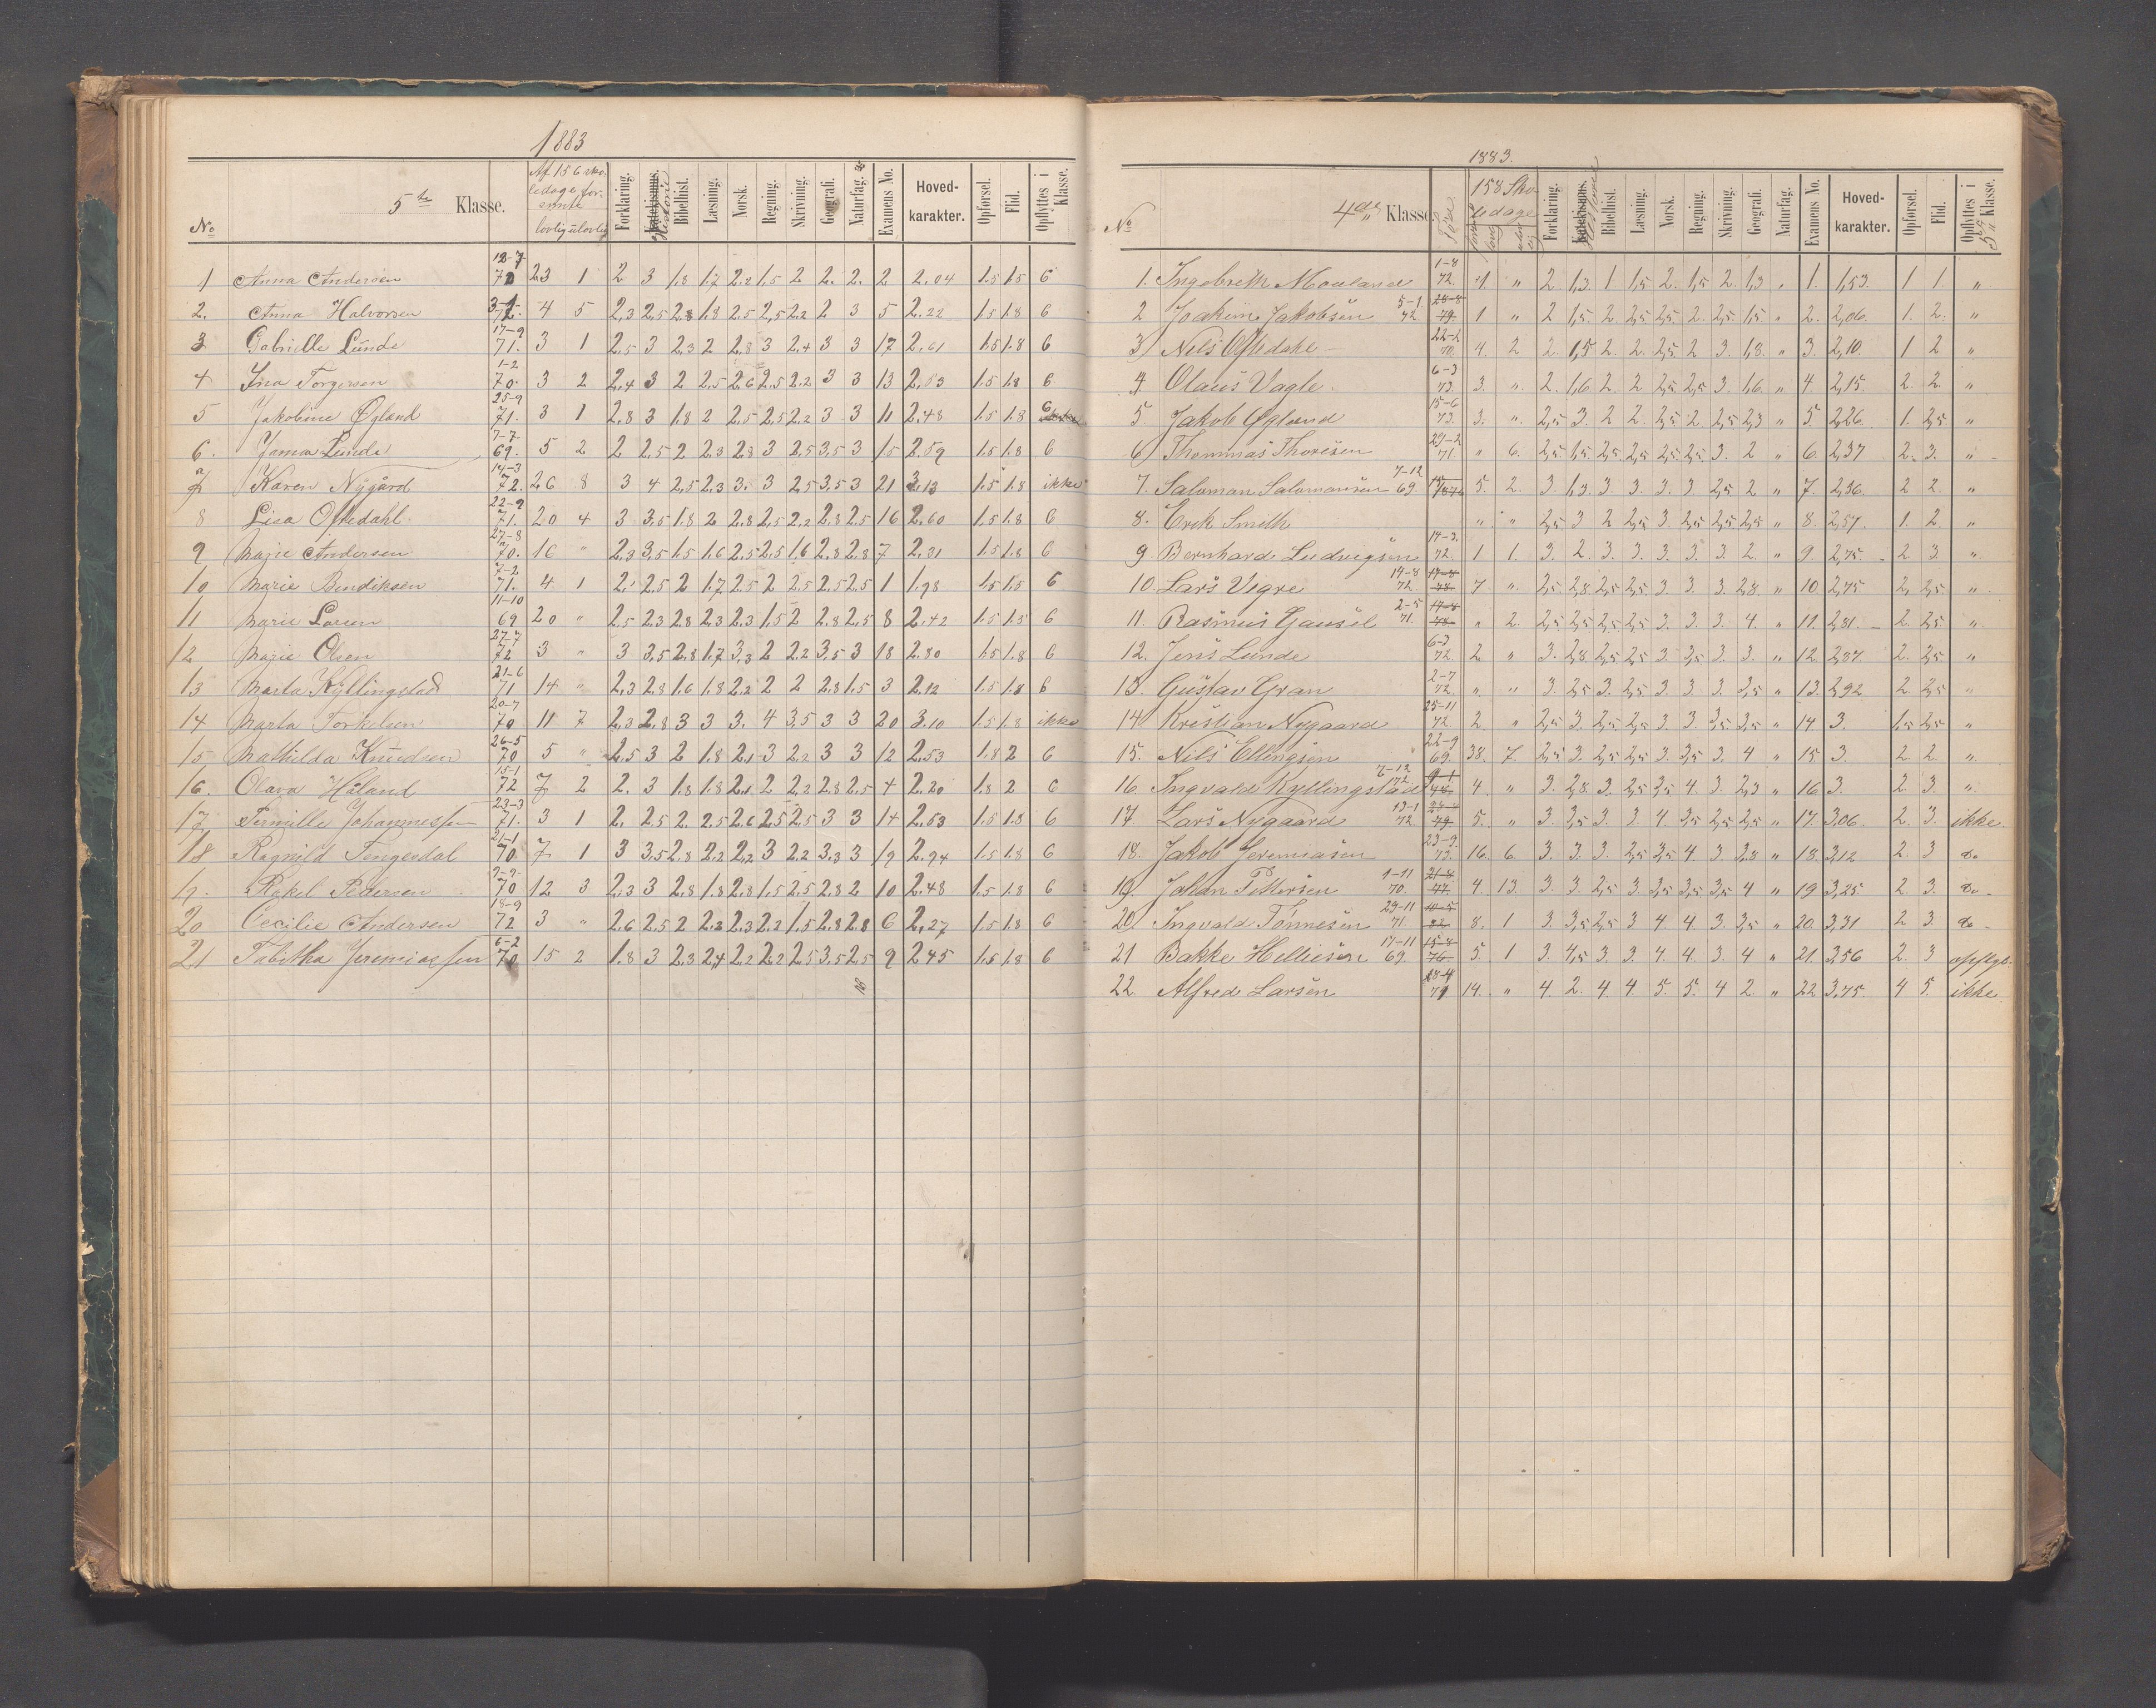 1883
No 5te Klasse. Af 156 skoledage forsømte lovlig ulovlig Forklaring. Historie Bibelhist. Læsning. Norsk. Regning. Skrivning. Geografi. Naturfag. Examens No. Hoved-karakter. Opførsel. Flid. Opflyttes i Klasse.
1 Anna Andersen 12-7 70 23 1 2 3 1.8 1.7 2.2 1.5 2 2. 2. 2 2.04 1.5 1.5 6
2. Anna Halvorsen 72. 4 5 2,3 2,5 2.8 1.8 2.5 2,5 2.2 2 3 5 2.22 1.5 1.8 6
3 Gabrielle Lunde 17-9 71. 3 1 2.5 3 2,3 2 2.8 3 2.4 3 3 17 2.61 1.5 1.8 6
4 Ina Torgersen 1-2 70. 3 2 2,4 3 2 2.5 2.6 2.5 2.2 3 3 13 1.5 1.8 6
5 Jakobine Øgland 25-9 71. 3 1 2.8 3 1.8 2 2.5 2.5 2.2 3 3 11 2.48 1.5 1.8 6
6. Lunde 7-7 69. 5 2 2 2.5 2 2.3 2.8 3 2.5 3.5 3 15 2.59 1.5 1.8 6
7 Karen Nÿgård 14-3 72. 26 8 3 4 2.5 2.3 3. 3 2.5 3.5 3 21 3.13 1.5 1.8 ikke
8 Lisa Oftedahl 22-9 71. 20 4 3 3.5 1.8 2 2.8 2,5 2.2 2.8 2.5 16 2.60 1.5 1.8 6
9 Marie Andersen 27-8 70. 16 " 2.3 3.5 1.5 1.6 2.5 2.5 1.6 2.8 2.8 7 2.31 1.5 1.8 6
10 Marie Bendiksen 7-2 71. 4 1 2. 2.5 2 1.7 2.5 2 2.5 2.5 2.5 1 1.98 1.5 1.5 6
11 Marie Larsen 11-10 69 20 " 2.5 2.3 2.8 2.3 2.3 1.5 2 2.8 2.5 8 2.42 1.5 1.5 6
12 Marie Olsen 27-7 72 3 " 3 3.5 2.8 1.7 3,3 2 2.2 3.5 3 18 2.80 1.5 1.8 6
13 Marta Kÿllingstad 21-6 71 14 " 2,3 2.8 1.6 1.8 2.2 2 2 2.8 1.5 3 2.12 1.5 1.8 6
14 Marta Torkelsen 20-7 70 11 7 2.3 2.8 3 3 3. 4 3.5 3 3 20 3.10 1.5 1.8 ikke
15 Mathilda Knudsen 26-5 70 5 " 2.5 3 2 1.8 2.1 3 2.2 3 3 12 2.53 1.8 2 6
16. Olava Håland 15-1 72 7 2 2. 3 1.8 1.8 2.1 2 2.2 2.8 2.5 4 2.20 1.8 2 6
17 Pernille Johannessen 23-3 71. 3 1 2. 2.5 2. 2.5 2.6 2.5 2.5 3 3 14 2.53 1.5 1.8 6
18 Ragnild Tengesdal 21-1 70 7 1 3 3.5 2.8 2.2 2,2 3 2.2 3.3 3 19 2.94 1.5 1.8 6
19. Rakel Pedersen 70 12 3 2.3 3 2.8 1.8 2.8 1.5 2.5 2.8 2 10 2.48 1.5 1.8 6
20 Cecilie Andersen 18-9 72 3 " 2.6 2.5 2 2.2 2.3 2.2 1.5 2.8 2.8 6 2,27 1.5 1.8 6
21 Tabitha Jeremiassen 6-2 70 15 2 1.8 3 2.3 2,4 2.2 2.2 2.5 3.5 2.5 9 2.45 1.5 1.8 6
1883.
No 4de Klasse Född 158 Skoledage Forklaring. Historie Bibelhist. Læsning. Norsk. Regning. Skrivning. Geografi. Naturfag. Examens No. Hoved-karakter. Opførsel. Flid. Opflyttes i 5te Klasse.
1. Ingebreth Mauland 1-8 72. 1 " 2. 1,3. 1 1,5 2. 1,5 2. 1,3 " 1. 1,53. 1 1. "
2 Joakim Jakobsen 5-1. 72. 28-8 79. 1 " 2 1,5 2. 2,5 2,5 2. 2,5 1,5 " 2. 2,06. 1. 2. "
3 Nils Oftedahl 22-2 70. 4. 2 2. 1,5 2. 2. 2,5. 2 3. 1,8. " 3. 2,10. 1 2 "
4 Olaus Vagle. 6-3 73. 3. " 2. 1,6. 2 2 2,5 2,5 3. 1,6. " 4. 2,15. 2. 2. "
5. Jakob Øgland 15-6 73. 3. " 2,5 3. 2 2. 2,5 2. 2,5 2,3 " 5. 2,26. 1. 2,5 "
6 Thommas Thorisen 29-2 71. " 6. 2,5 1,5 2,5. 2,5 2,5. 2,5 3. 2 " 6. 2,37 2. 3. "
7. Saloman Salomonsen 7-12 69. 5. 2. 3. 1,3. 3. 3. 3. 3. 2,5 2 " 7. 2,36. 2 2. "
8. Erik Smith " " 2,5 3 2 2,5 3. 2,5 2,5 2,5 " 8. 2,57. 1. 2. "
9 Bernhard Ludvigsen 14-3. 72. 1 1. 3. 2. 3. 3. 3. 3. 3. 2. " 9. 2,75 2 3. "
10. Lars Vigre 14-8 72. 17-8 78. 7 " 2,5. 2,8. 2,5 2,5 3. 3. 3. 2,8. " 10. 2,75. 2, 2,5. "
11. Rasmus Gausel 2-5 71. 17-8 78. " 2. 2,5 2,5 2,5 2,5 3. 3. 3. 4. " 11. 2,81. 2. 2,5 "
12. Jens Lunde 6-3 72. 2 " 3. 2,8. 2,5 2,5 3. 3,5 3. 3. " 12. 2,87. 2. 2,5 "
13. Gustav Gran 2-7 72. " " 3. 2,5 3. 2,5 3. 3. 3. 3,5 " 13. 2,92 2. 2,5 "
14. Kristian Nygaard 25-11 72. 2 " 2,5 3. 2,5 2,5 3 3. 3,5 2,5 " 14 3. 1,5 2,5 "
15. Nils Ellingsen 22-9 69. 38. 7. 2,5 3. 2,5 2,5 3. 3,5 3. 4 " 15. 3. 2. 2. "
16. Ingvald Kyllingstad 7-12 72. 4. " 3. 2,8. 3. 2,5 3,5 4. 3. 2,3 " 16 3. 2 3. "
17. Lars Nygaard 13-1 72. 79. 5. " 3. 3,5 3. 3. 4 3,5 2,5 2,5 " 17. 3,06. 2. 3. ikke
18. Jakob Jeremiasen 23-9. 73. 16. 6. 3. 3. 3. 2,5 3,5 4. 3. 3,8 " 18. 3,12 2. 3 do
19. Johan Pettersen 1-11 70. 21-8 77. 4. 13. 3. 3. 2,5 3. 3,5 3,5 3,5 4 " 19 3,25. 2. 3. do
20. Ingvald Tönnesen 29-11 71. 8. 1 3. 3,5 2,5 3 4 4. 3. 3,5 " 20. 3,31 2 3. do
21 Bakke Helliesen 17-11 69. 15-8 76. 5. 1 3. 4,5 3. 3. 4. 4. 3. 4 " 21. 3,56 2. 3 opflyt.
22. Alfred Larsen 71 14. " 4. 2. 4 4. 5. 5. 4 2. " 22 3,75. 4 5. ikke.